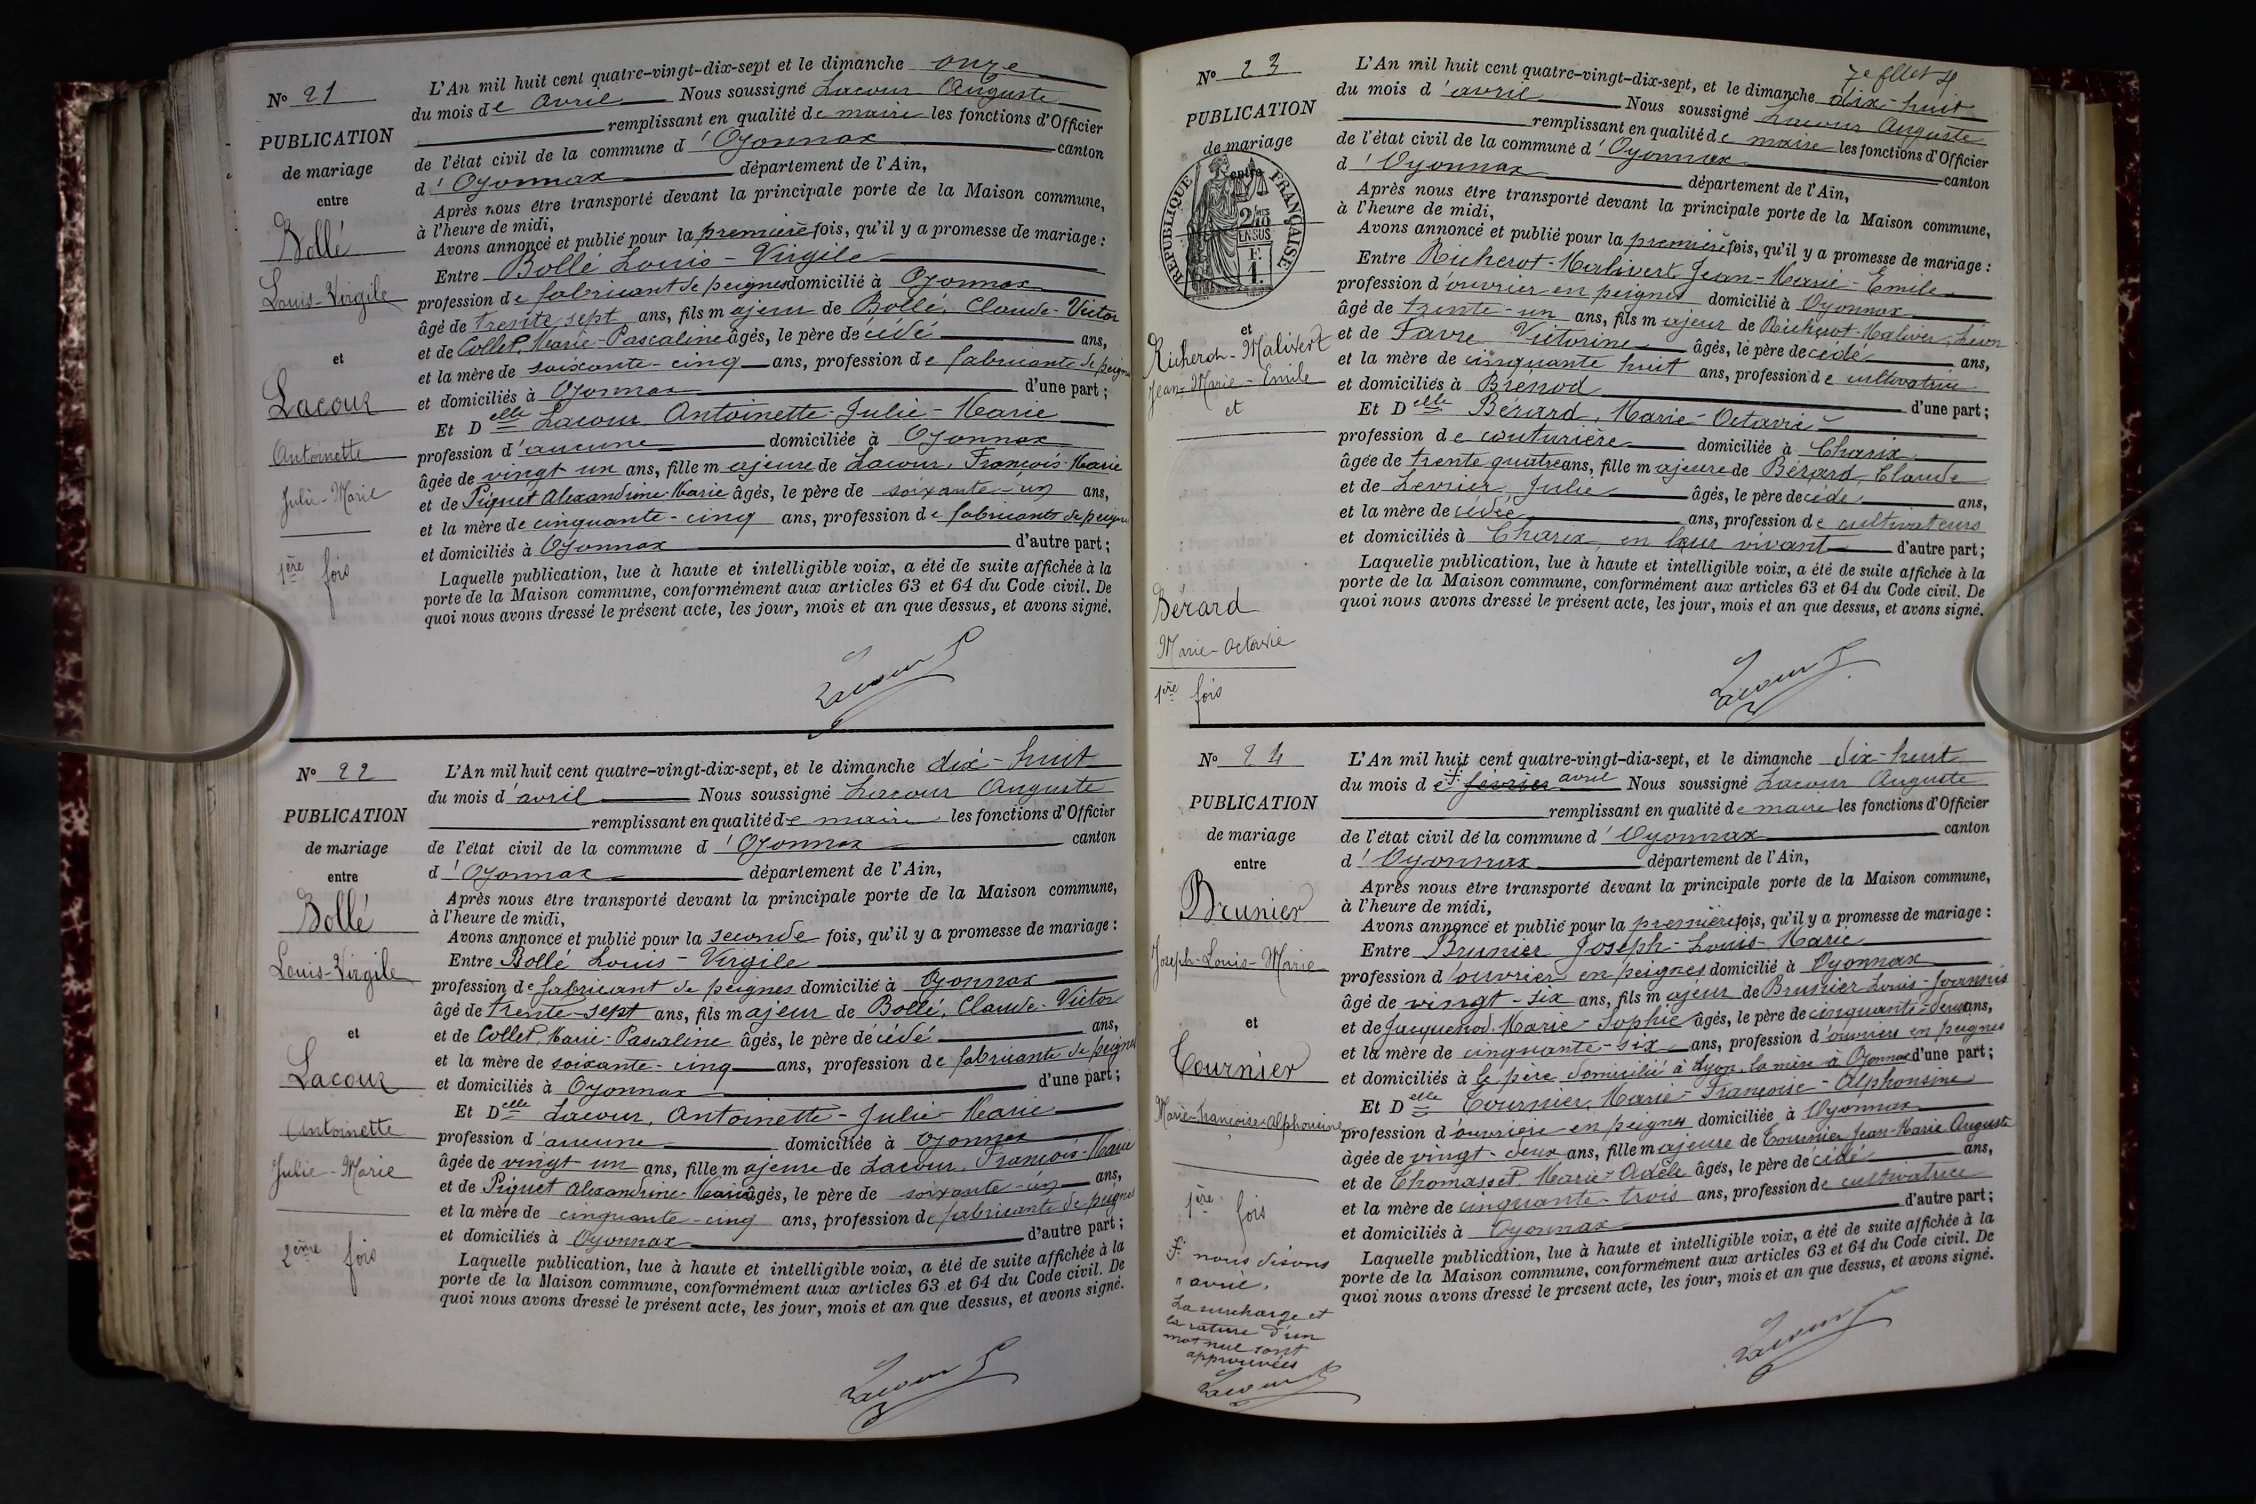 N° 21
PUBLICATION
de mariage
entre
Bollé
Louis-Virgile
et
Lacour
Antoinette
Julie-Marie
1ère fois
L'An mil huit cent quatre-vingt-dix-sept et le dimanche onze
du mois de avril Nous soussigné Lacour Auguste
remplissant en qualité de maire les fonctions d'Officier
de l'état civil de la commune d'Oyonnax canton
d'Oyonnax département de l'Ain,
Après nous être transporté devant la principale porte de la Maison commune,
à l'heure de midi,
Avons annoncé et publié pour la première fois, qu'il y a promesse de mariage :
Entre Bollé Louis-Virgile
profession de fabricant de peignes domicilié à Oyonnax
âgé de trente sept ans, fils majeur de Bollé, Claude-Victor
et de Collet, Marie-Pascaline âgés, le père de cédé ans,
et la mère de soixante-cinq ans, profession de fabricante de peignes
et domiciliés à Oyonnax d'une part ;
Et Delle Lacour, Antoinette-Julie-Marie
profession d'aucune domiciliée à Oyonnax
âgée de vingt un ans, fille majeure de Lacour, François-Marie
et de Piquet Alexandrine-Marie âgés, le père de soixante-un ans,
et la mère de cinquante-cinq ans, profession de fabricants de peignes
et domiciliés à Oyonnax d'autre part ;
Laquelle publication, lue à haute et intelligible voix, a été de suite affichée à la
porte de la Maison commune, conformément aux articles 63 et 64 du Code civil. De
quoi nous avons dressé le présent acte, les jour, mois et an que dessus, et avons signé.
Lacour
N° 22
PUBLICATION
de mariage
entre
Bollé
Louis-Virgile
et
Lacour
Antoinette
Julie-Marie
2ème fois
L'An mil huit cent quatre-vingt-dix-sept, et le dimanche dix-huit
du mois d'avril Nous soussigné Lacour Auguste
remplissant en qualité de maire les fonctions d'Officier
de l'état civil de la commune d'Oyonnax canton
d'Oyonnax département de l'Ain,
Après nous être transporté devant la principale porte de la Maison commune,
à l'heure de midi,
Avons annoncé et publié pour la seconde fois, qu'il y a promesse de mariage :
Entre Bollé Louis-Virgile
profession de fabricant de peignes domicilié à Oyonnax
âgé de trente-sept ans, fils majeur de Bollé, Claude-Victor
et de Collet, Marie-Pascaline âgés, le père décédé ans,
et la mère de soixante-cinq ans, profession de fabricante de peignes
et domiciliés à Oyonnax d'une part ;
Et Delle Lacour, Antoinette-Julie-Marie
profession d'aucune domiciliée à Oyonnax
âgée de vingt un ans, fille majeure de Lacour, François-Marie
et de Piquet Alexandrine-Marie âgés, le père de soixante-un ans,
et la mère de cinquante-cinq ans, profession de fabricants de peignes
et domiciliés à Oyonnax d'autre part ;
Laquelle publication, lue à haute et intelligible voix, a été de suite affichée à la
porte de la Maison commune, conformément aux articles 63 et 64 du Code civil. De
quoi nous avons dressé le présent acte, les jour, mois et an que dessus, et avons signé.
Lacour
7e fllet
N° 23
PUBLICATION
de mariage
entre
RÉPUBLIQUE FRANÇAISE
2/10 EN SUS
F. 1.
et
Richerot-Malivert
Jean-Marie-Emile
et
Bérard
Marie-Octavie
1ère fois
L'An mil huit cent quatre-vingt-dix-sept, et le dimanche dix-huit
du mois d'avril Nous soussigné Lacour Auguste
remplissant en qualité de maire les fonctions d'Officier
de l'état civil de la commune d'Oyonnax canton
d'Oyonnax département de l'Ain,
Après nous être transporté devant la principale porte de la Maison commune,
à l'heure de midi,
Avons annoncé et publié pour la première fois, qu'il y a promesse de mariage :
Entre Richerot-Malivert, Jean-Marie-Emile
profession d'ouvrier en peignes domicilié à Oyonnax
âgé de trente-un ans, fils majeur de Richerot-Malivert, Léon
et de Favre Victorine âgés, le père décédé ans,
et la mère de cinquante huit ans, profession de cultivatrice
et domiciliés à Brénod d'une part ;
Et Delle Bérard, Marie-Octavie
profession de couturière domiciliée à Charix
âgée de trente quatre ans, fille majeure de Bérard, Claude
et de Levrier, Julie âgés, le père décédé ans,
et la mère décédée ans, profession de cultivateurs
et domiciliés à Charix, en leur vivant d'autre part ;
Laquelle publication, lue à haute et intelligible voix, a été de suite affichée à la
porte de la Maison commune, conformément aux articles 63 et 64 du Code civil. De
quoi nous avons dressé le présent acte, les jour, mois et an que dessus, et avons signé.
Lacour
N° 24
PUBLICATION
de mariage
entre
Brunier
Joseph-Louis-Marie
et
Tournier
Marie-Françoise-Alphonsine
1ère fois
F. nous disons
"avril.
La surcharge et
la rature d'un
mot nul sont
approuvées
Lacour
L'An mil huit cent quatre-vingt-dix-sept, et le dimanche dix-huit
du mois de février avril Nous soussigné Lacour Auguste
remplissant en qualité de maire les fonctions d'Officier
de l'état civil de la commune d'Oyonnax canton
d'Oyonnax département de l'Ain,
Après nous être transporté devant la principale porte de la Maison commune,
à l'heure de midi,
Avons annoncé et publié pour la première fois, qu'il y a promesse de mariage :
Entre Brunier Joseph-Louis-Marie
profession d'ouvrier en peignes domicilié à Oyonnax
âgé de vingt-six ans, fils majeur de Brunier Louis-Joannès
et de Jacquenod-Marie-Sophie âgés, le père de cinquante-deux ans,
et la mère de cinquante-six ans, profession d'ouvriers en peignes
et domiciliés à le père domicilié à Lyon, la mère à Oyonnax d'une part ;
Et Delle Tournier, Marie-Françoise-Alphonsine
profession d'ouvrière en peignes domiciliée à Oyonnax
âgée de vingt-deux ans, fille majeure de Tournier Jean-Marie Auguste
et de Thomasset, Marie-Adèle âgés, le père décédé ans,
et la mère de cinquante-trois ans, profession de cultivatrice
et domiciliés à Oyonnax d'autre part ;
Laquelle publication, lue à haute et intelligible voix, a été de suite affichée à la
porte de la Maison commune, conformément aux articles 63 et 64 du Code civil. De
quoi nous avons dressé le present acte, les jour, mois et an que dessus, et avons signé.
Lacour